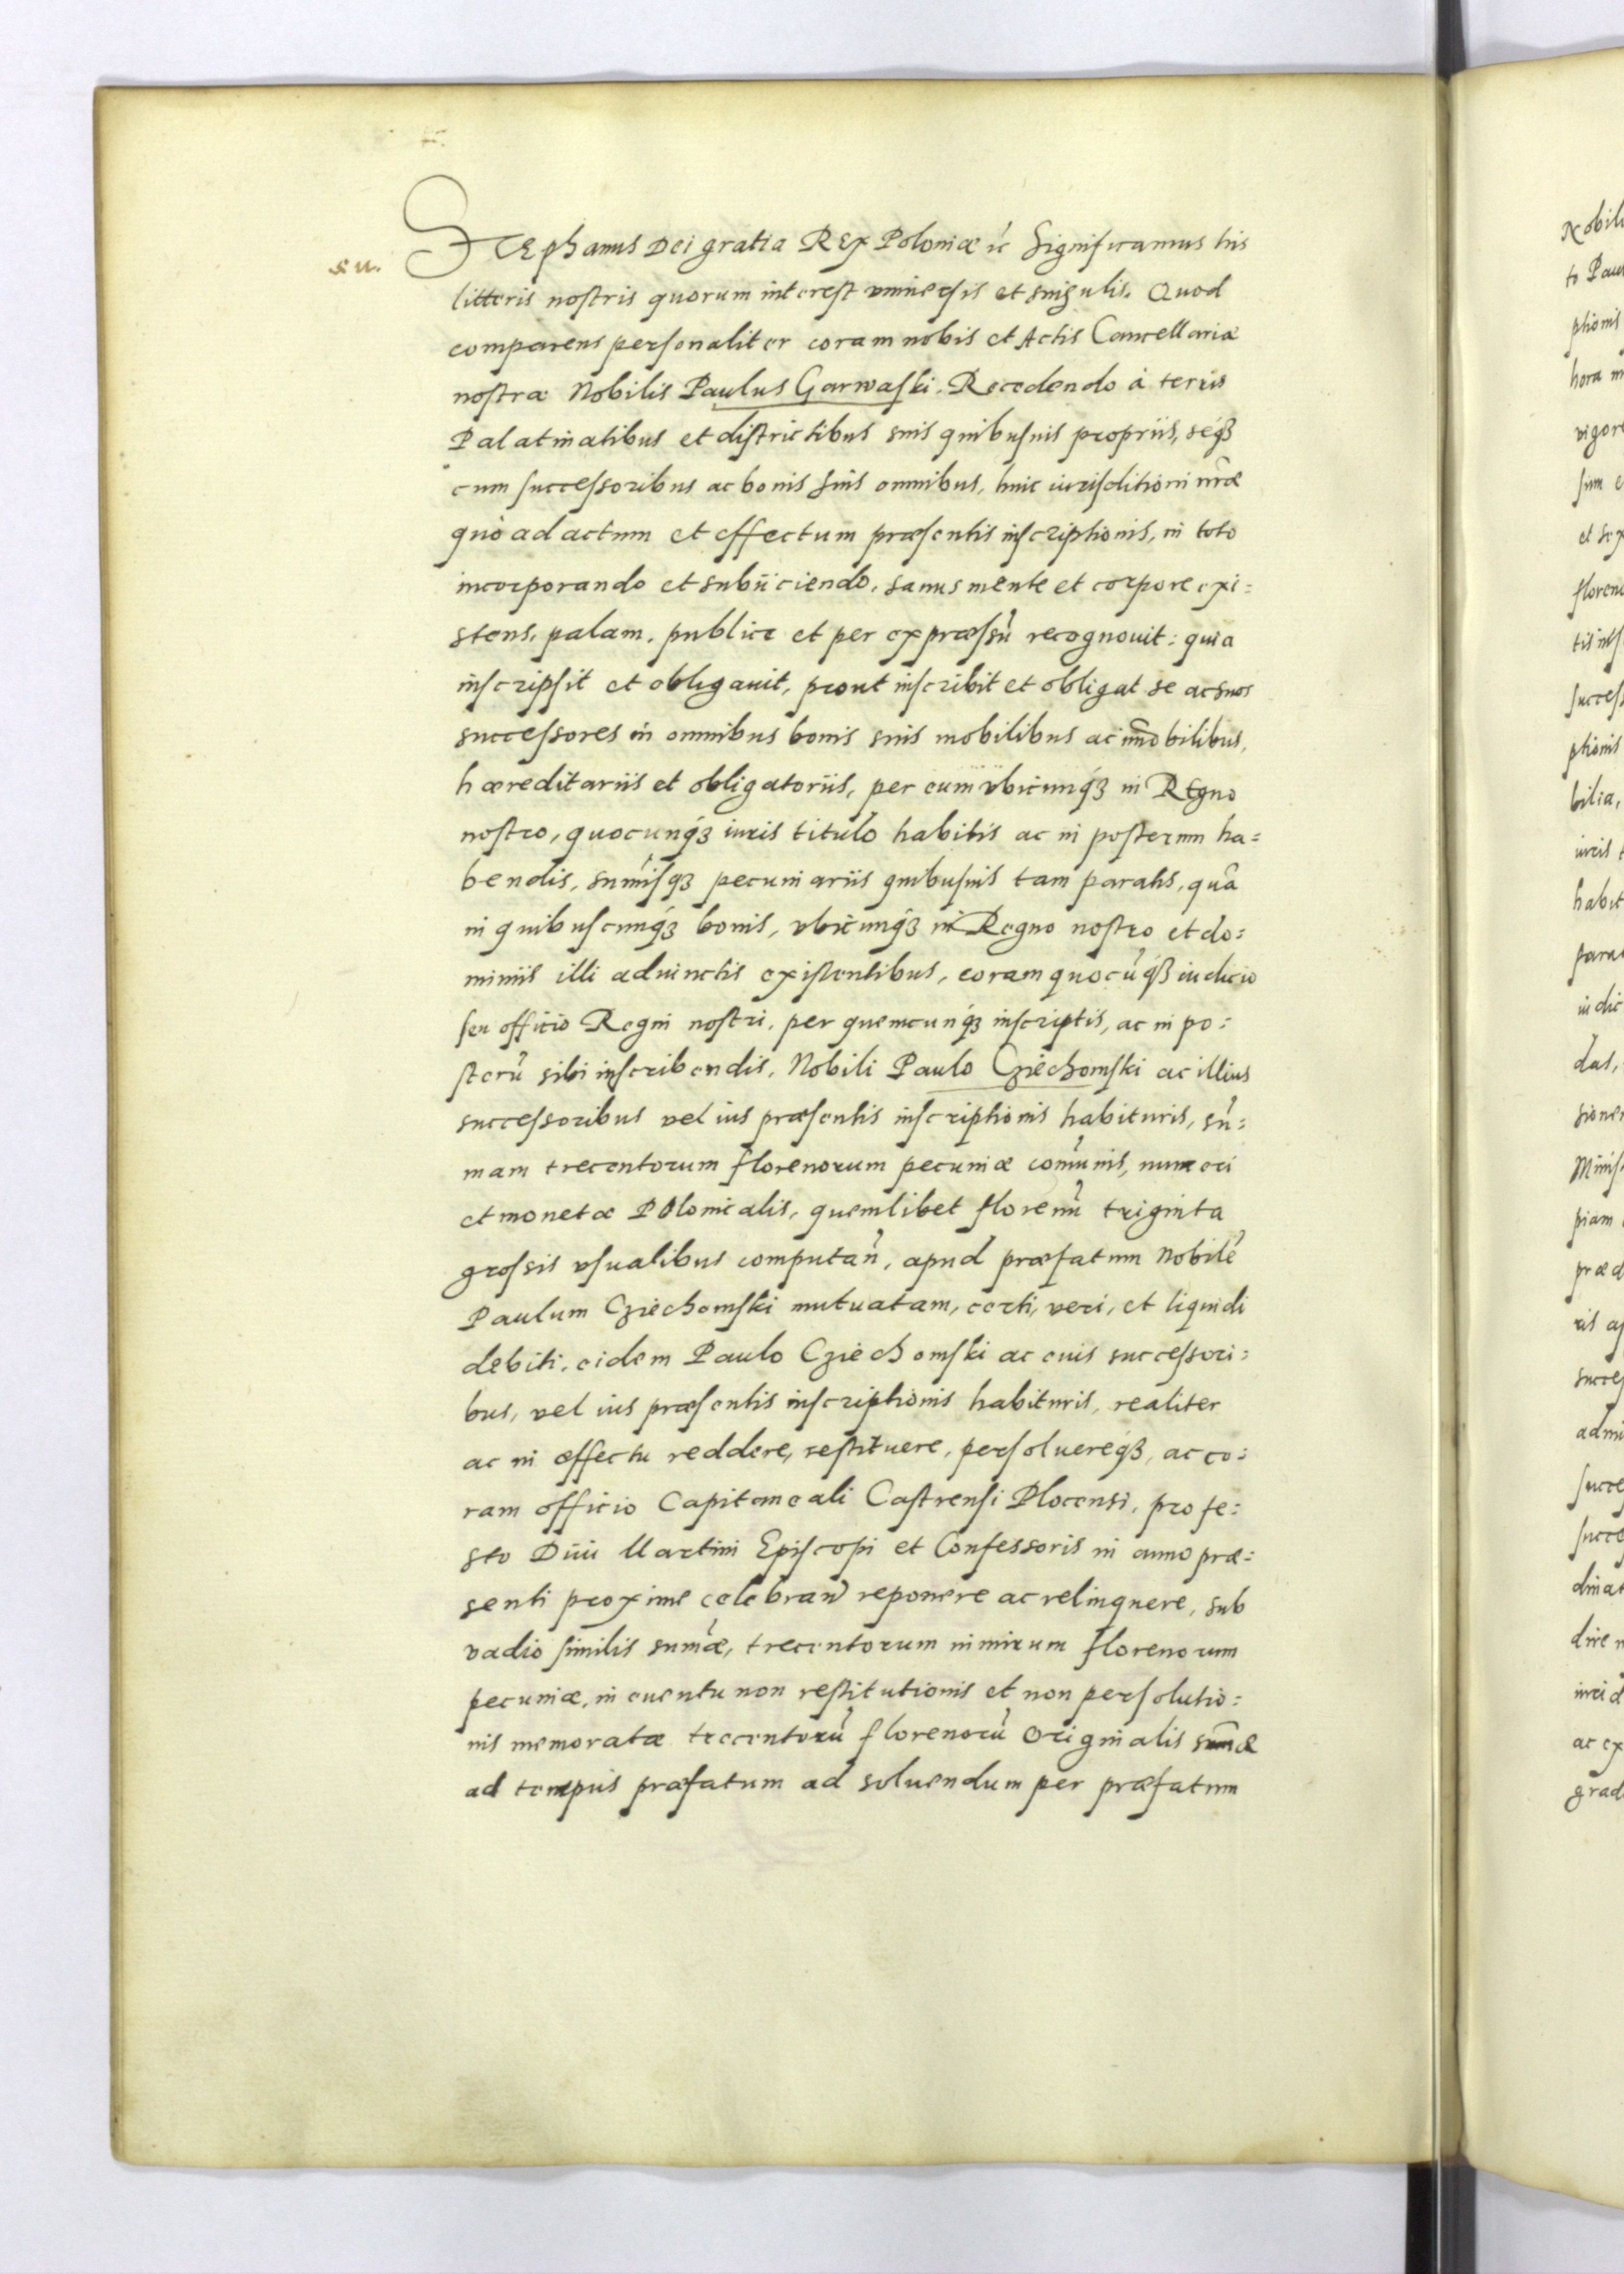 Stephanus Dei gratia Rex Poloniæ &c Significamus his
litteris nostris quorum interest vniuersis et singulis. Quod
comparens personaliter coram nobis et Actis Cancellariæ
nostræ Nobilis Paulus Garwaski. Recedendo à terris
Palatinatibus et districtibus suis quibusuis propriis, seq₃
cum successoribus ac bonis suis omnibus, huic iurisditioni nr̃æ
quò ad actum et effectum præsentis inscriptionis, in toto
incorporando et subijciendo. sanus mente et corpore exi=
stens. palam. publice et per expræssũ recognouit: quia
inscripsit et obligauit, prout inscribit et obligat se ac suos
successores in omnibus bonis suis mobilibus ac im̃obilibus,
hæreditariis et obligatoriis, per eum vbicunq₃ in Regno
nostro, quocunq₃ iuris titulo habitis ac in posterum ha=
bendis, sum̃isq₃ pecuniariis quibusuis tam paratis, quã
in quibuscunq₃ bonis, vbicunq₃ in Regno nostro et do=
miniis illi adiunctis existentibus, coram quocũq₃ iudicio
seu officio Regni nostri, per quemcunq₃ inscriptis, ac in po=
sterũ sibi inscribendis. Nobili Paulo Cziechomski ac illius
successoribus vel ius præsentis inscriptionis habituris, sũ=
mam trecentorum florenorum pecuniæ com̃unis, numeri
et monetæ Polonicalis, quemlibet florenũ triginta
grossis vsualibus computañ, apud præfatum Nobilẽ
Paulum Cziechomski mutuatam, certi, veri, et liquidi
debiti. eidem Paulo Cziechomski ac euis successori=
bus, vel ius præsentis inscriptionis habituris, realiter
ac in effectu reddere, restituere, persoluereq₃, ac co=
ram officio Capitaneali Castrensi Plocensi, pro fe=
sto Diui Martini Episcopi et Confessoris in anno præ=
senti proxime celebrañ reponere ac relinquere, sub
vadio similis sum̃æ, trecentorum nimirum florenorum
pecuniæ, in euentu non restitutionis et non persolutio=
nis memoratæ trecentorũ florenorũ originalis sum̃æ
ad tempus præfatum ad soluendum per præfatum